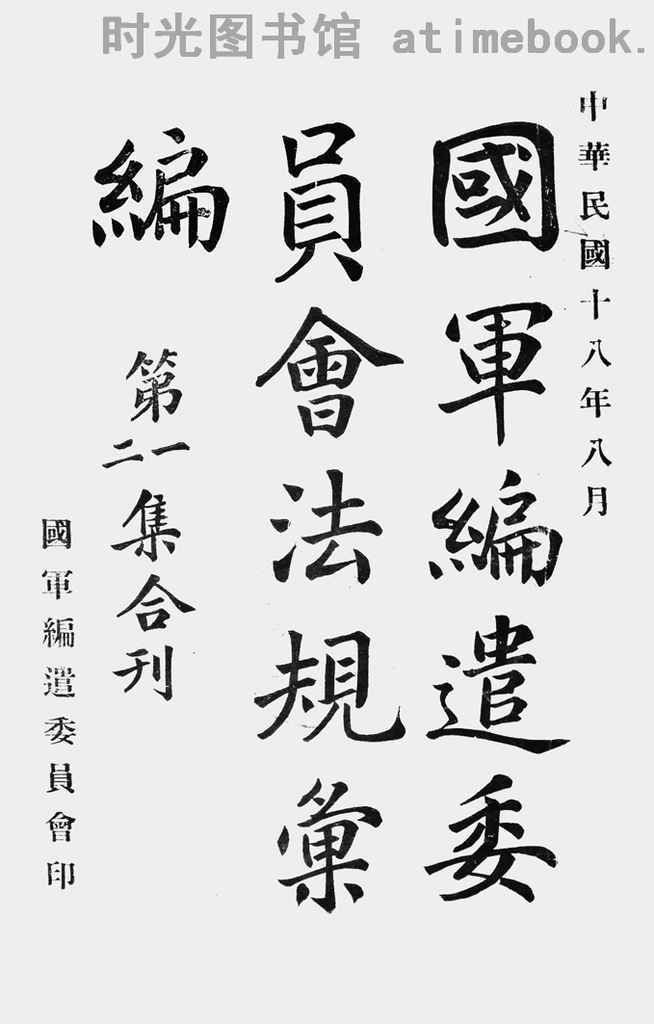 时光图书馆 atimebook.
中華民國十八年八月
國軍編遣委
員會法規彙
編 第一二集合刊
國軍編遣委員會印